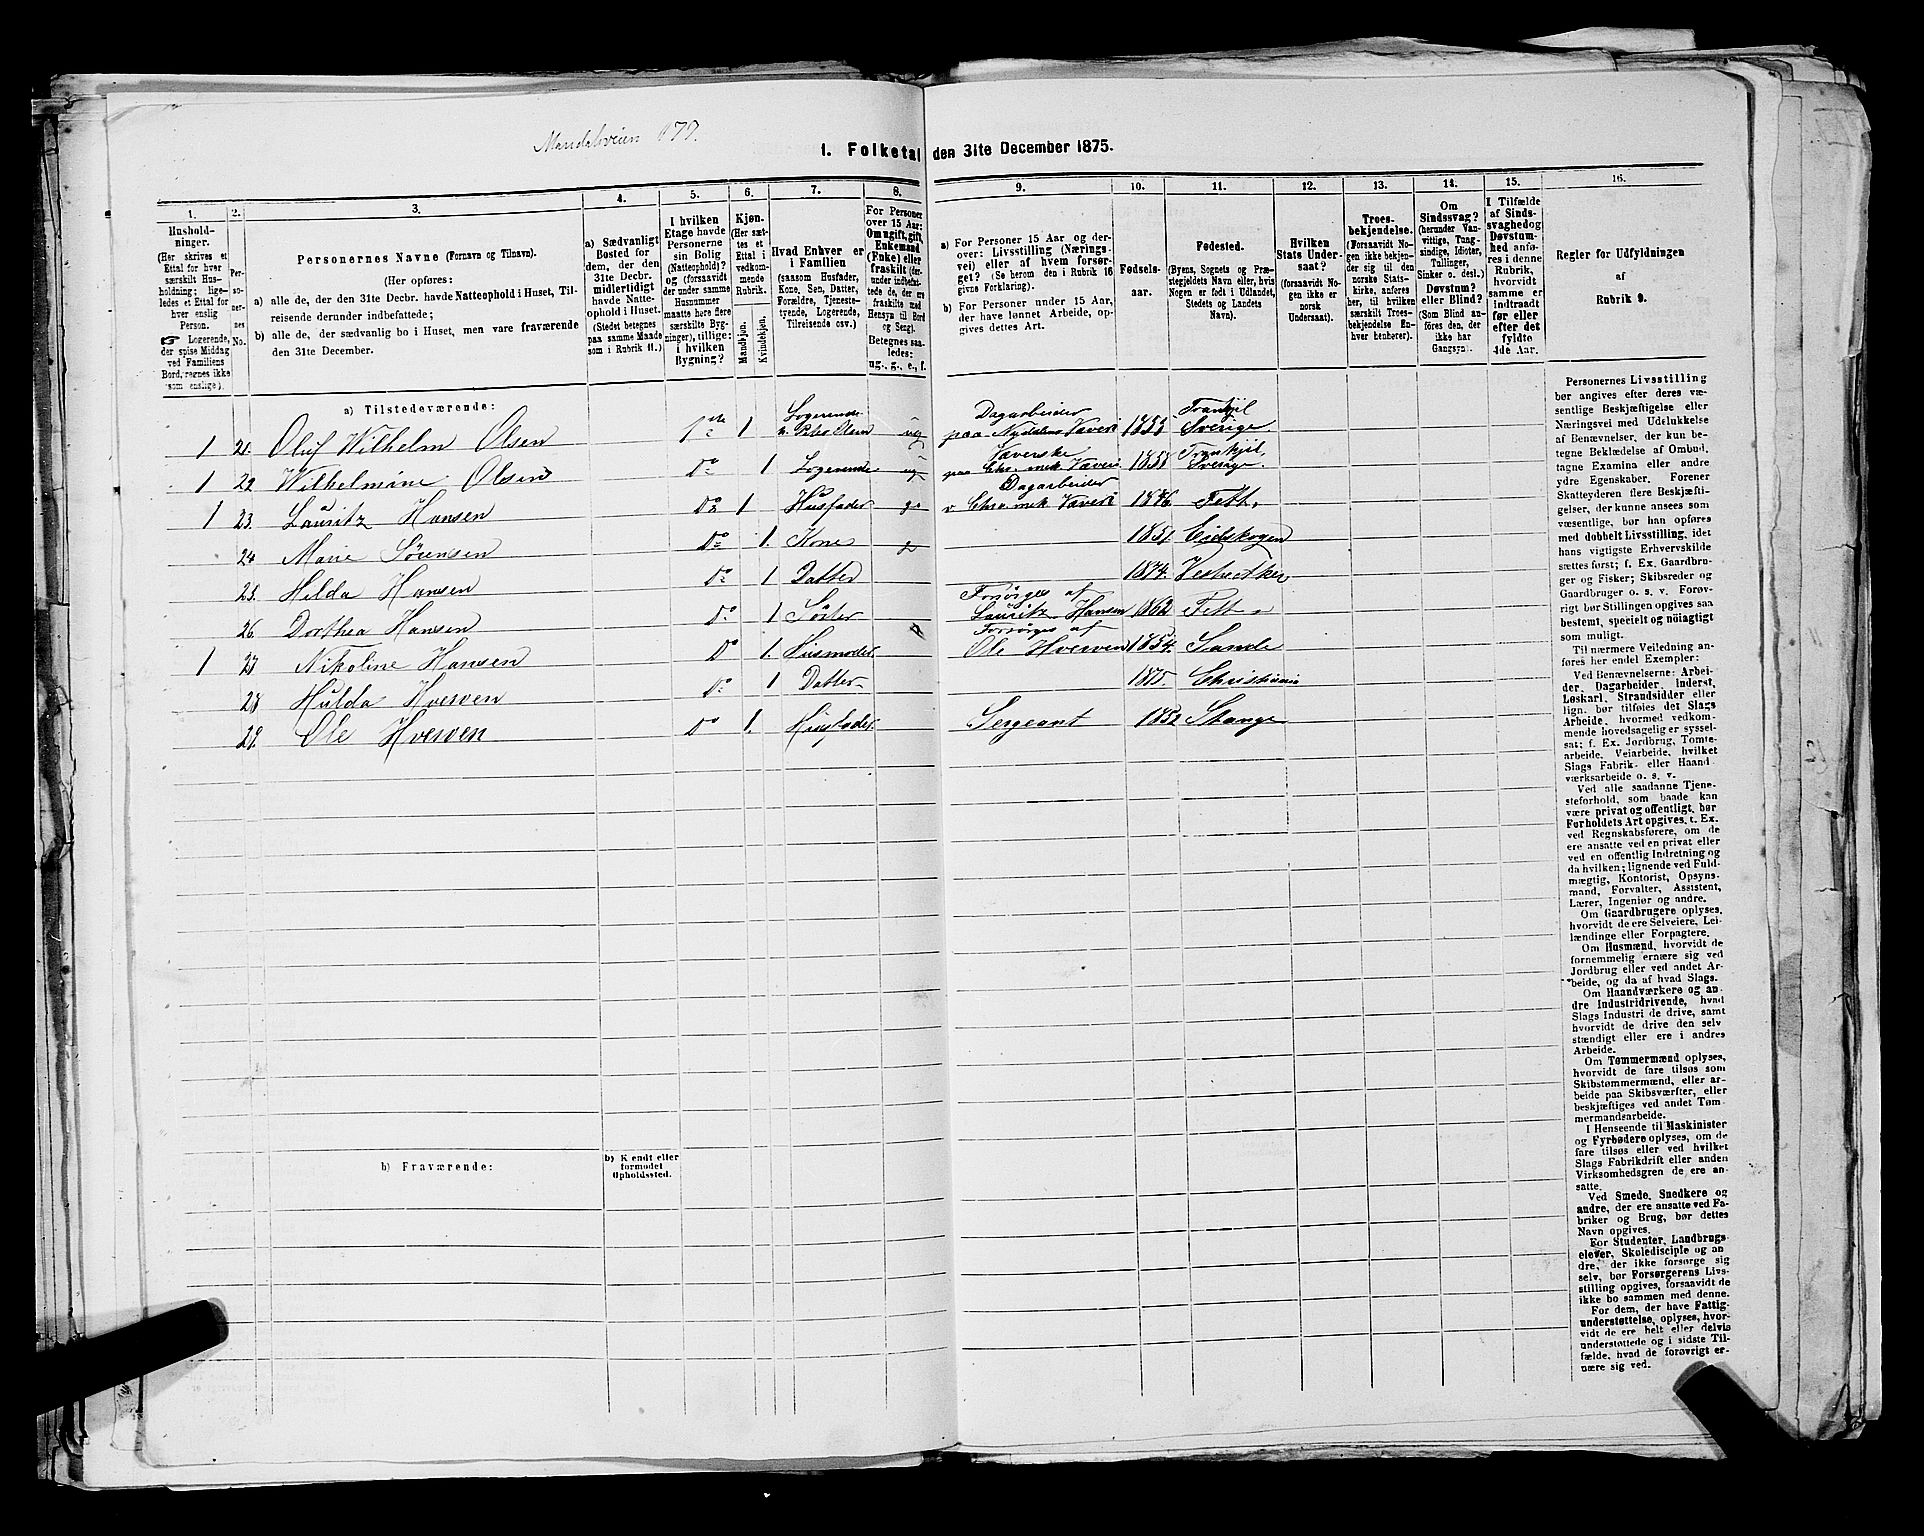 Mandalsveien 177.
1. Folketal den 31te December 1875.
1. 2. 3. 4. 5. 6. 7. 8. 9. 10. 11. 12. 13. 14. 15. 16.
Hushold-
ninger.
(Her skrives et
Ettal for hver
særskilt Hus-
holdning; lige-
ledes et Ettal for
hver enslig
Person.
☞ Logerende,
der spise Middag
ved Familiens
Bord, regnes ikke
som enslige).
Per-
so-
ner-
nes
No.
Personernes Navne (Fornavn og Tilnavn).
(Her opføres:
a) alle de, der den 31te Decbr. havde Natteophold i Huset, Til-
reisende derunder indbefattede;
b) alle de, der sædvanlig bo i Huset, men vare fraværende
den 31te December.
a) Sædvanligt
Bosted for
dem, der den
31te Decbr.
midlertidigt
havde Natte-
ophold i Huset.
(Stedet betegnes
paa samme Maade
som i Rubrik 11.)
I hvilken
Etage havde
Personerne
sin Bolig
(Natteophold)?
og (forsaavidt
der under samme
Husnummer
maatte høre flere
særskilte Byg-
ninger), tillige:
i hvilken
Bygning?
Kjøn.
(Her sæt-
tes et
Ettal i
vedkom-
mende
Rubrik.
Mandkjøn.
Kvindekjøn.
Hvad Enhver er
i Familien
(saasom Husfader,
Kone, Søn, Datter,
Forældre, Tjeneste-
tyende, Logerende,
Tilreisende osv.)
For Personer
over 15 Aar:
Om ugift, gift,
Enkemand
(Enke) eller
fraskilt (der-
under indbefat-
tede de, der ere
fraskilte med
Hensyn til Bord
og Seng).
Betegnes saa-
ledes:
ug., g., e., f.
a) For Personer 15 Aar og der-
over: Livsstilling (Nærings-
vei) eller af hvem forsør-
get? (Se herom den i Rubrik 16
givne Forklaring).
b) For Personer under 15 Aar,
der have lønnet Arbeide, op-
gives dettes Art.
Fødsels-
aar.
Fødested.
(Byens, Sognets og Præ-
stegjeldets Navn eller, hvis
Nogen er født i Udlandet,
Stedets og Landets
Navn).
Hvilken
Stats Under-
saat?
(forsaavidt No-
gen ikke er
norsk
Undersaat).
Troes-
bekjendelse.
(Forsaavidt No-
gen ikke bekjen-
der sig til den
norske Stats-
kirke, anføres
her, til hvilken
særskilt Troes-
bekjendelse En-
hver henhører).
Om
Sindssvag?
(herunder Van-
vittige, Tung-
sindige, Idioter,
Tullinger,
Sinker o. desl.)
Døvstum?
eller Blind?
(Som Blind an-
føres den, der
ikke har
Gangsyn).
I Tilfælde
af Sinds-
svaghed og
Døvstum-
hed anfø-
res i denne
Rubrik,
hvorvidt
samme er
indtraadt
før eller
efter det
fyldte
4de Aar.
Regler for Udfyldningen
af
Rubrik 9.
a) Tilstedeværende:
1 21. Oluf Wilhelm Olsen 1 Logerende h. Peter Olsen ug Dagarbeider paa Nydalens Væveri 1853 Sverige
1 22 Wilhelmine Olsen Do 1 Logerende ug Væverske paa Chra. mek. Væveri 1858 Sverige.
1 23. Lauritz Hansen Do 1 Husfader g. Dagarbeider v Chra. mek Væveri Fett,
24 Marie Sörensen Do 1. Kone g 1851. Eidskogen
25. Hilda Hansen Do 1 Datter 1874.
26. Dorthea Hansen Do 1 Söster Forsörges af Lauritz Hansen 1862 Fett
1 27 Nikoline Hansen Do 1. Husmoder Forsörges af Ole Hverven 1854. Sande
28 Hulda Hverven Do 1 Datter 1875. Christiania
29. Ole Hverven Do 1. Husfader. Sergeant 1852 Stange
b) Fraværende:
b) Kjendt eller
formodet
Opholdssted.
Personernes Livsstilling
bør angives efter deres væ-
sentlige Beskjæftigelse eller
Næringsvei med Udelukkelse
af Benævnelser, der kun be-
tegne Beklædelse af Ombud,
tagne Examina eller andre
ydre Egenskaber. Forener
Skatteyderen flere Beskjæfti-
gelser, der kunne ansees som
væsentlige, bør han opføres
med dobbelt Livsstilling, idet
hans vigtigste Erhvervskilde
sættes først; f. Ex. Gaardbru-
ger og Fisker; Skibsreder og
Gaardbruger o. s. v. Forøv-
rigt bør Stillingen opgives saa
bestemt, specielt og nøiagtigt
som muligt.
Til nærmere Veiledning an-
føres her endel Exempler:
Ved Benævnelserne: Arbei-
der, Dagarbeider, Inderst,
Løskarl, Strandsidder eller
lign. bør tilføies det Slags
Arbeide, hvormed vedkom-
mende hovedsagelig er syssel-
sat; f. Ex. Jordbrug, Tomte-
arbeide, Veiarbeide, hvilket
Slags Fabrik- eller Haand-
værksarbeide o. s. v.
Ved alle saadanne Tjene-
steforhold, som baade kan
være privat og offentligt, bør
Forholdets Art opgives, t. Ex.
ved Regnskabsførere, om de
ere ansatte ved en privat eller
ved en offentlig Indretning og
da hvilken; lignende ved Fuld-
mægtig, Kontorist, Opsyns-
mand, Forvalter, Assistent,
Lærer, Ingeniør og andre.
Om Gaardbrugere oplyses,
hvorvidt de ere Selveiere, Lei-
lændinge eller Forpagtere.
Om Husmænd, hvorvidt de
fornemmelig ernære sig ved
Jordbrug eller ved andet Ar-
beide, og da af hvad Slags.
Om Haandværkere og an-
dre Industridrivende, hvad
Slags Industri de drive, samt
hvorvidt de drive den selv-
stændigt eller ere i andres
Arbeide.
Om Tømmermænd oplyses,
hvorvidt de fare tilsøs som
Skibstømmermænd, eller ar-
beide paa Skibsværfter, eller
beskjæftiges ved andet Tøm-
mermandsarbeide.
I Henseende til Maskinister
og Fyrbødere oplyses, om de
fare tilsøs eller ved hvilket
Slags Fabrikdrift eller anden
Virksomhedsgren de ere an-
satte.
Ved Smede, Snedkere og
andre, der ere ansatte ved Fa-
briker og Brug, bør dettes
Navn opgives.
For Studenter, Landbrugs-
elever, Skoledisciple og an-
dre, der ikke forsørge sig
selv, bør Forsørgerens Livs-
stilling opgives, forsaavidt de
ikke bo sammen med denne.
For dem, der have Fattig-
understøttelse, oplyses, hvor-
vidt de ere helt eller delvis
understøttede og i sidste Til-
fælde, hvad de forøvrigt er-
nære sig ved.